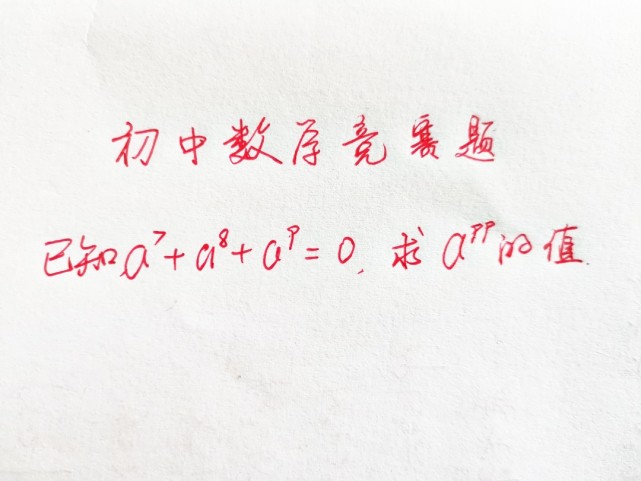 初中数学竞赛题
已知a⁷+a⁸+a⁹=0,求a⁹⁹的值.